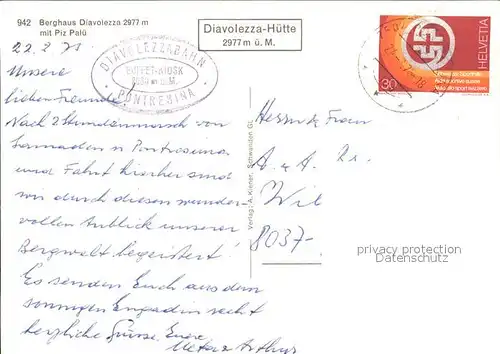 942 Berghaus Diavolezza 2977 m
mit Piz Palü
Diavolezza-Hütte
2977 m ü. M.
DIAVOLEZZABAHN
BUFFET-KIOSK
PONTRESINA
HELVETIA
30
Verlag: A. Kiener, Schwanden GL
Unsere
lieben Freunde
Nach 2 Stundenmarsch von
Samaden n Pontresina
und Fahrt hierher sind
wir durch diesen wunder-
vollen Anblick unserer
Bergwelt begeistert.
Es senden Euch aus dem
sonnigen Engadin recht
herzliche Grüsse Eure
Arthur
Herrn u Frau
Wil
8037-
privacy protection
Datenschutz